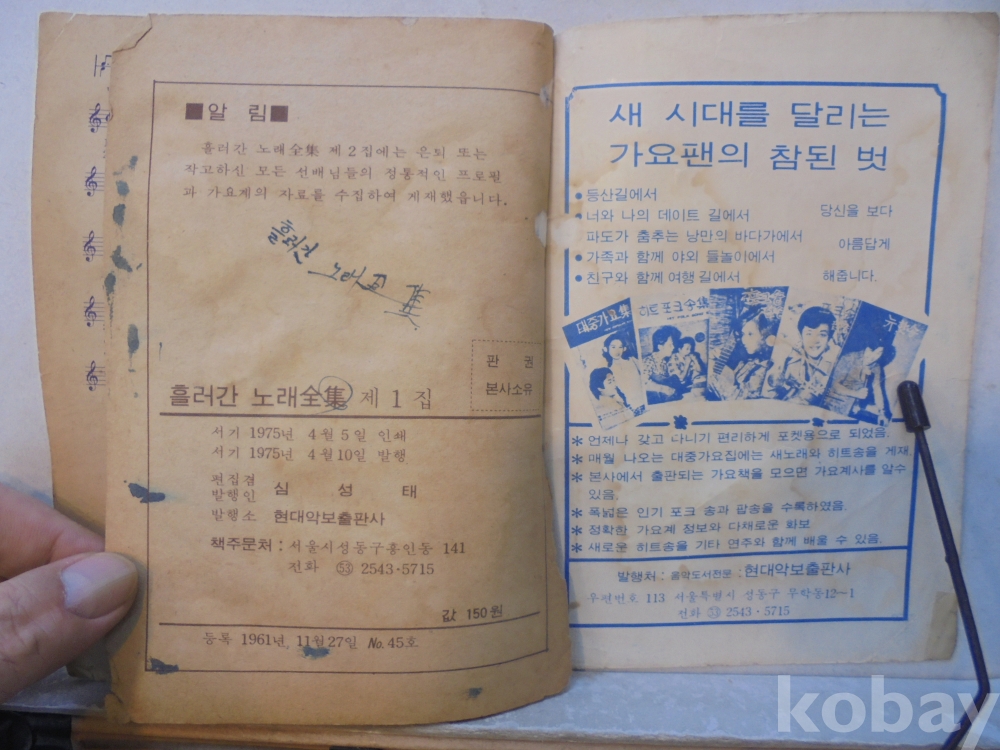 ■알 림■
흘러간 노래全集 제 2 집에는 은퇴 또는
작고하신 모든 선배님들의 정통적인 프로필
과 가요계의 자료를 수집하여 게재했읍니다.
흘러간 노래全集
판 권
본사소유
흘러간 노래全集 제 1 집
서기 1975년 4월 5일 인쇄
서기 1975년 4월10일 발행
편집겸
발행인 심 성 태
발행소 현대악보출판사
책주문처 : 서울시성동구흥인동 141
전화 53 2543·5715
값 150원
등록 1961년, 11월27일 No.45호
새 시대를 달리는
가요팬의 참된 벗
●등산길에서
●너와 나의 데이트 길에서 당신을 보다
파도가 춤추는 낭만의 바다가에서 아름답게
●가족과 함께 야외 들놀이에서
●친구와 함께 여행길에서 해줍니다.
대중가요集
* 언제나 갖고 다니기 편리하게 포켓용으로 되었음.
* 매월 나오는 대중가요집에는 새노래와 히트송을 게재.
* 본사에서 출판되는 가요책을 모으면 가요계사를 알수
있음.
* 폭넓은 인기 포크 송과 팝송을 수록하였음.
* 정확한 가요계 정보와 다채로운 화보
* 새로운 히트송을 기타 연주와 함께 배울 수 있음.
발행처 : 음악도서전문 : 현대악보출판사
우편번호 113 서울특별시 성동구 무학동12-1
전화 53 2543·5715
kobay